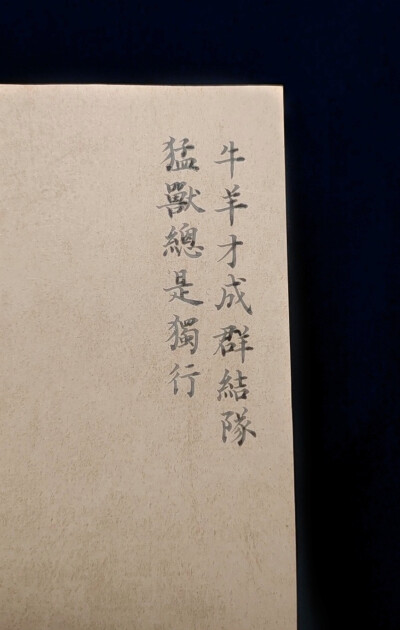 牛羊才成群結隊
猛獸總是獨行